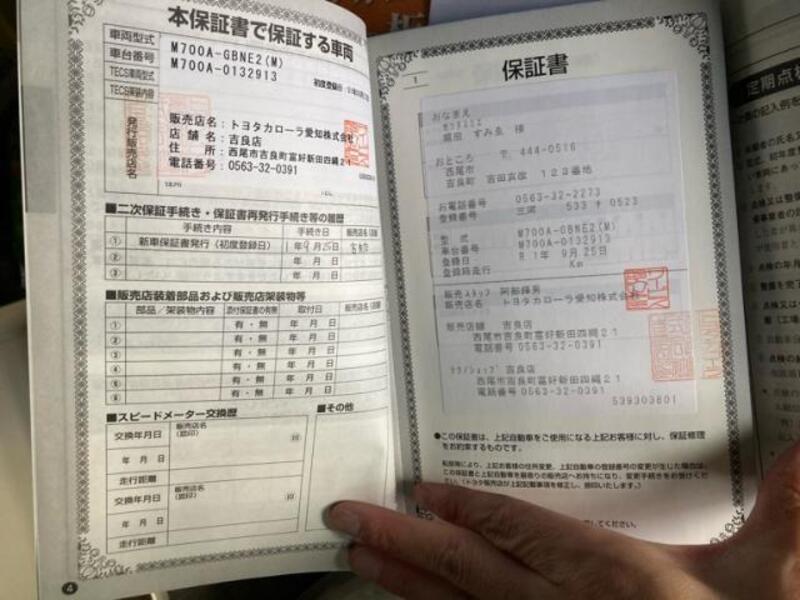 本保証書で保証する車両
車両型式
車台番号
M700A-GBNE2(M)
M700A-0132913
TECS車両型式
TECS架装内容
初度登録日:
発行販売店名
販売店名:トヨタカローラ愛知株式会社
店舗名:吉良店
住所:西尾市吉良町富好新田四縄21
電話番号:0563-32-0391
■二次保証手続き・保証書再発行手続き等の履歴
手続き内容 手続き日 販売店名
① 新車保証書発行(初度登録日) 1年9月25日
② 年 月 日
③ 年 月 日
■販売店装着部品および販売店架装物等
部品/架装物内容 添付保証書の有無 取付日 販売店名
① 有・無 年 月 日
② 有・無 年 月 日
③ 有・無 年 月 日
④ 有・無 年 月 日
⑤ 有・無 年 月 日
⑥ 有・無 年 月 日
■スピードメーター交換歴
■その他
交換年月日 販売店名(認印)
年 月 日
走行距離
交換年月日 販売店名(認印)
年 月 日
走行距離
4
1
保証書
おなまえ
すみゑ 様
おところ 〒 444-0516
西尾市
吉良町 吉田 123番地
お電話番号 0563-32-2273
登録番号 三河 533 0523
型式 M700A-GBNE2(M)
車台番号 M700A-0132913
登録日 R 1年 9月25日
登録時走行 Km
販売スタッフ 阿部輝男
販売店名 トヨタカローラ愛知株式会社
販売店舗 吉良店
西尾市吉良町富好新田四縄21
電話番号 0563-32-0391
テクノショップ 吉良店
西尾市吉良町富好新田四縄21
電話番号 0563-32-0391
539303801
●この保証書は、上記自動車をご使用になる上記お客様に対し、保証修理をお約束するものです。
転居等により、上記お客様の住所変更、上記自動車の登録番号の変更が生じた場合は、
この保証書と上記自動車を最寄りの販売店へお持ちになり、変更手続きをお受けください。(トヨタ販売店が上記記載事項を修正し、捺印いたします。)
てください。
定期点検